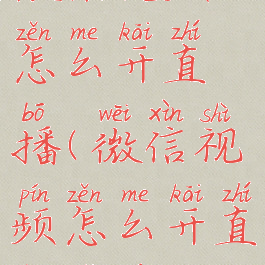 zěn me kāi zhí
怎么开直
bō wēi xìn shì
播(微信视
pín zěn me kāi zhí
频怎么开直